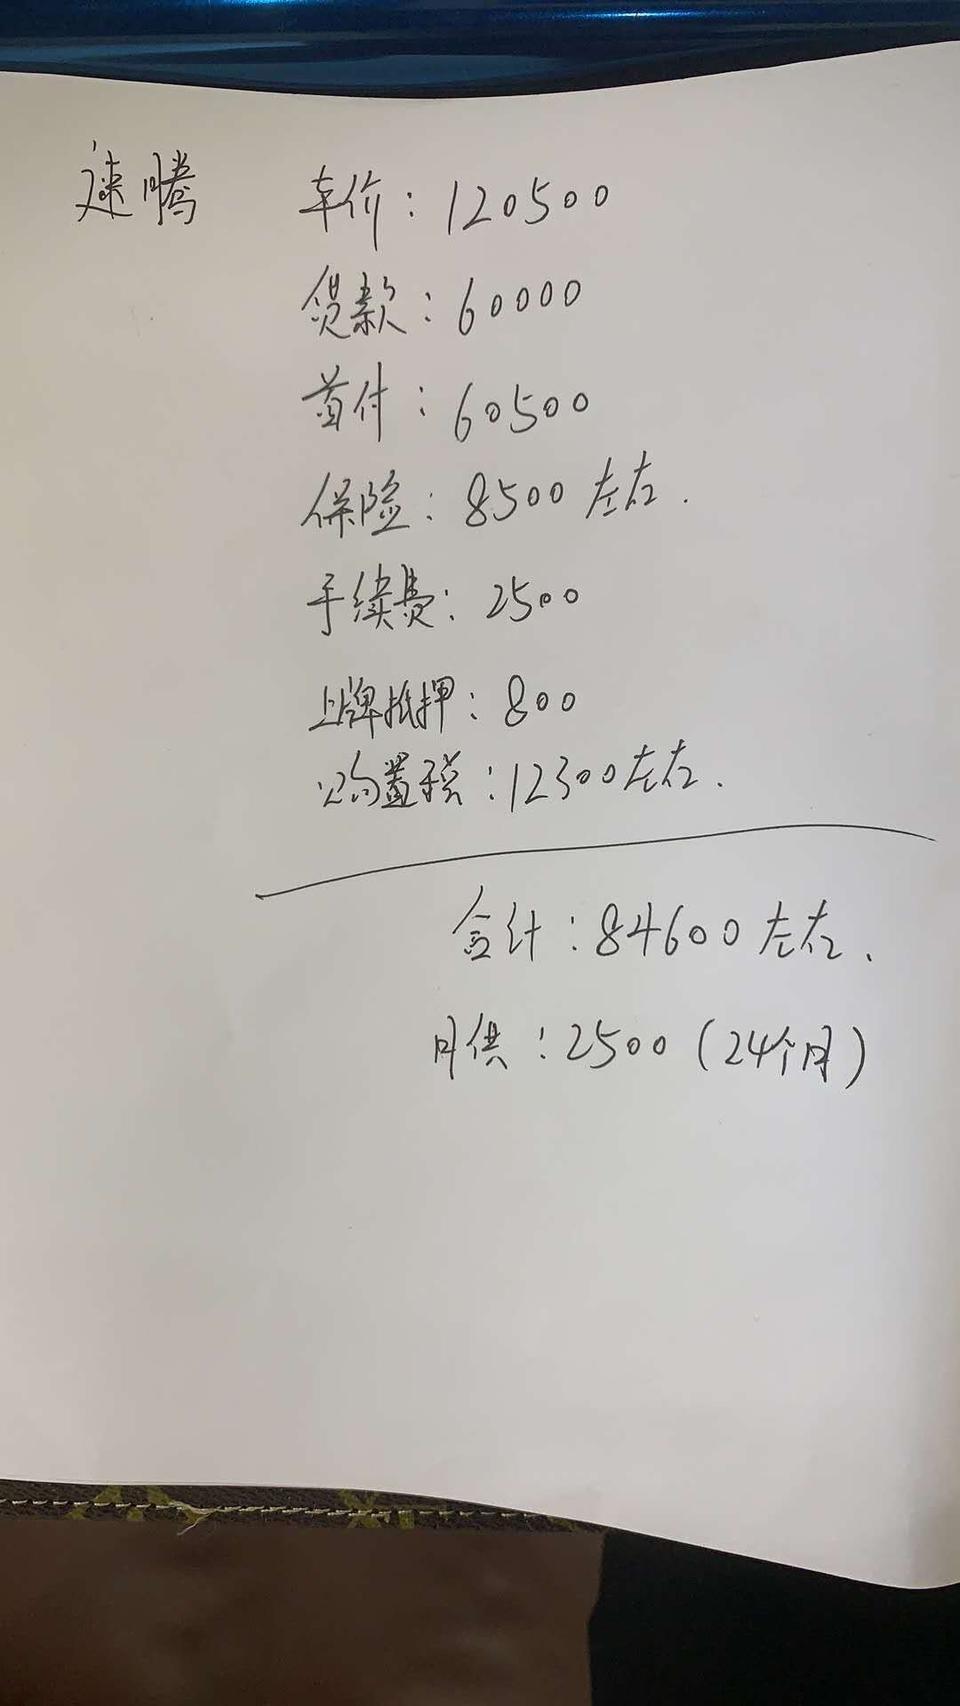 速腾 车价：120500
贷款：60000
首付：60500
保险：8500左右.
手续费：2500
上牌抵押：800
购置税：12300左右.
合计：84600左右.
月供：2500（24个月）